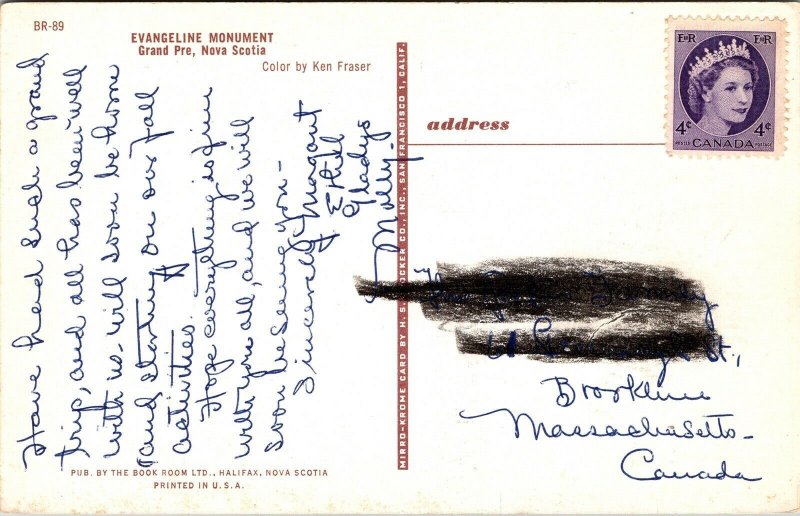 BR-89
EVANGELINE MONUMENT
Grand Pre, Nova Scotia
Color by Ken Fraser
Have had such a grand
trip, and all has been well
with us. will soon be home
and starting on our fall
activities.
Hope everything is fine
with you all, and we will
soon be seeing you -
Sincerely, Margaret
Ethel
Gladys
Molly -
PUB. BY THE BOOK ROOM LTD., HALIFAX, NOVA SCOTIA
PRINTED IN U.S.A.
MIRRO-KROME CARD BY H. S. CROCKER CO., INC., SAN FRANCISCO 1, CALIF.
address
E II R E II R
4¢ 4¢
POSTES CANADA POSTAGE
St.,
Brookline
Massachusetts -
Canada